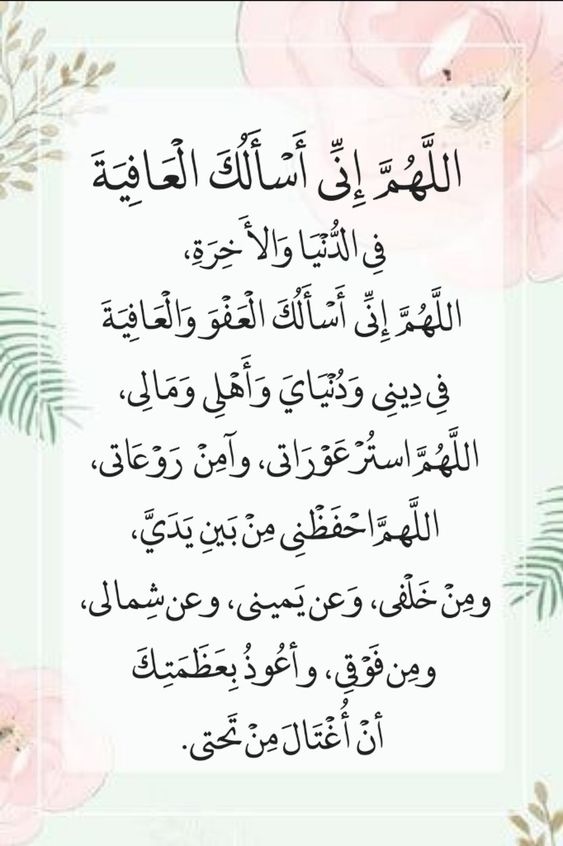 اللَّهُمَّ إِنِّى أَسْأَلُكَ الْعَافِيَةَ
فِى الدُّنْيَا وَالأَخِرَةِ،
اللَّهُمَّ إِنِّى أَسْأَلُكَ الْعَفْوَ وَالْعَافِيَةَ
فِى دِينِى وَدُنْيَايَ وَأَهْلِى وَمَالِى،
اللَّهُمَّ استُرْ عَوْرَاتى، وآمِنْ رَوْعَاتى،
اللَّهمَّ احْفَظْنِى مِنْ بَينِ يَدَيَّ،
ومِنْ خَلْفى، وَعن يَمينى، وعن شِمالى،
ومِن فَوْقِى، وأعُوذُ بِعَظَمَتِكَ
أنْ أُغْتَالَ مِنْ تَحتى.